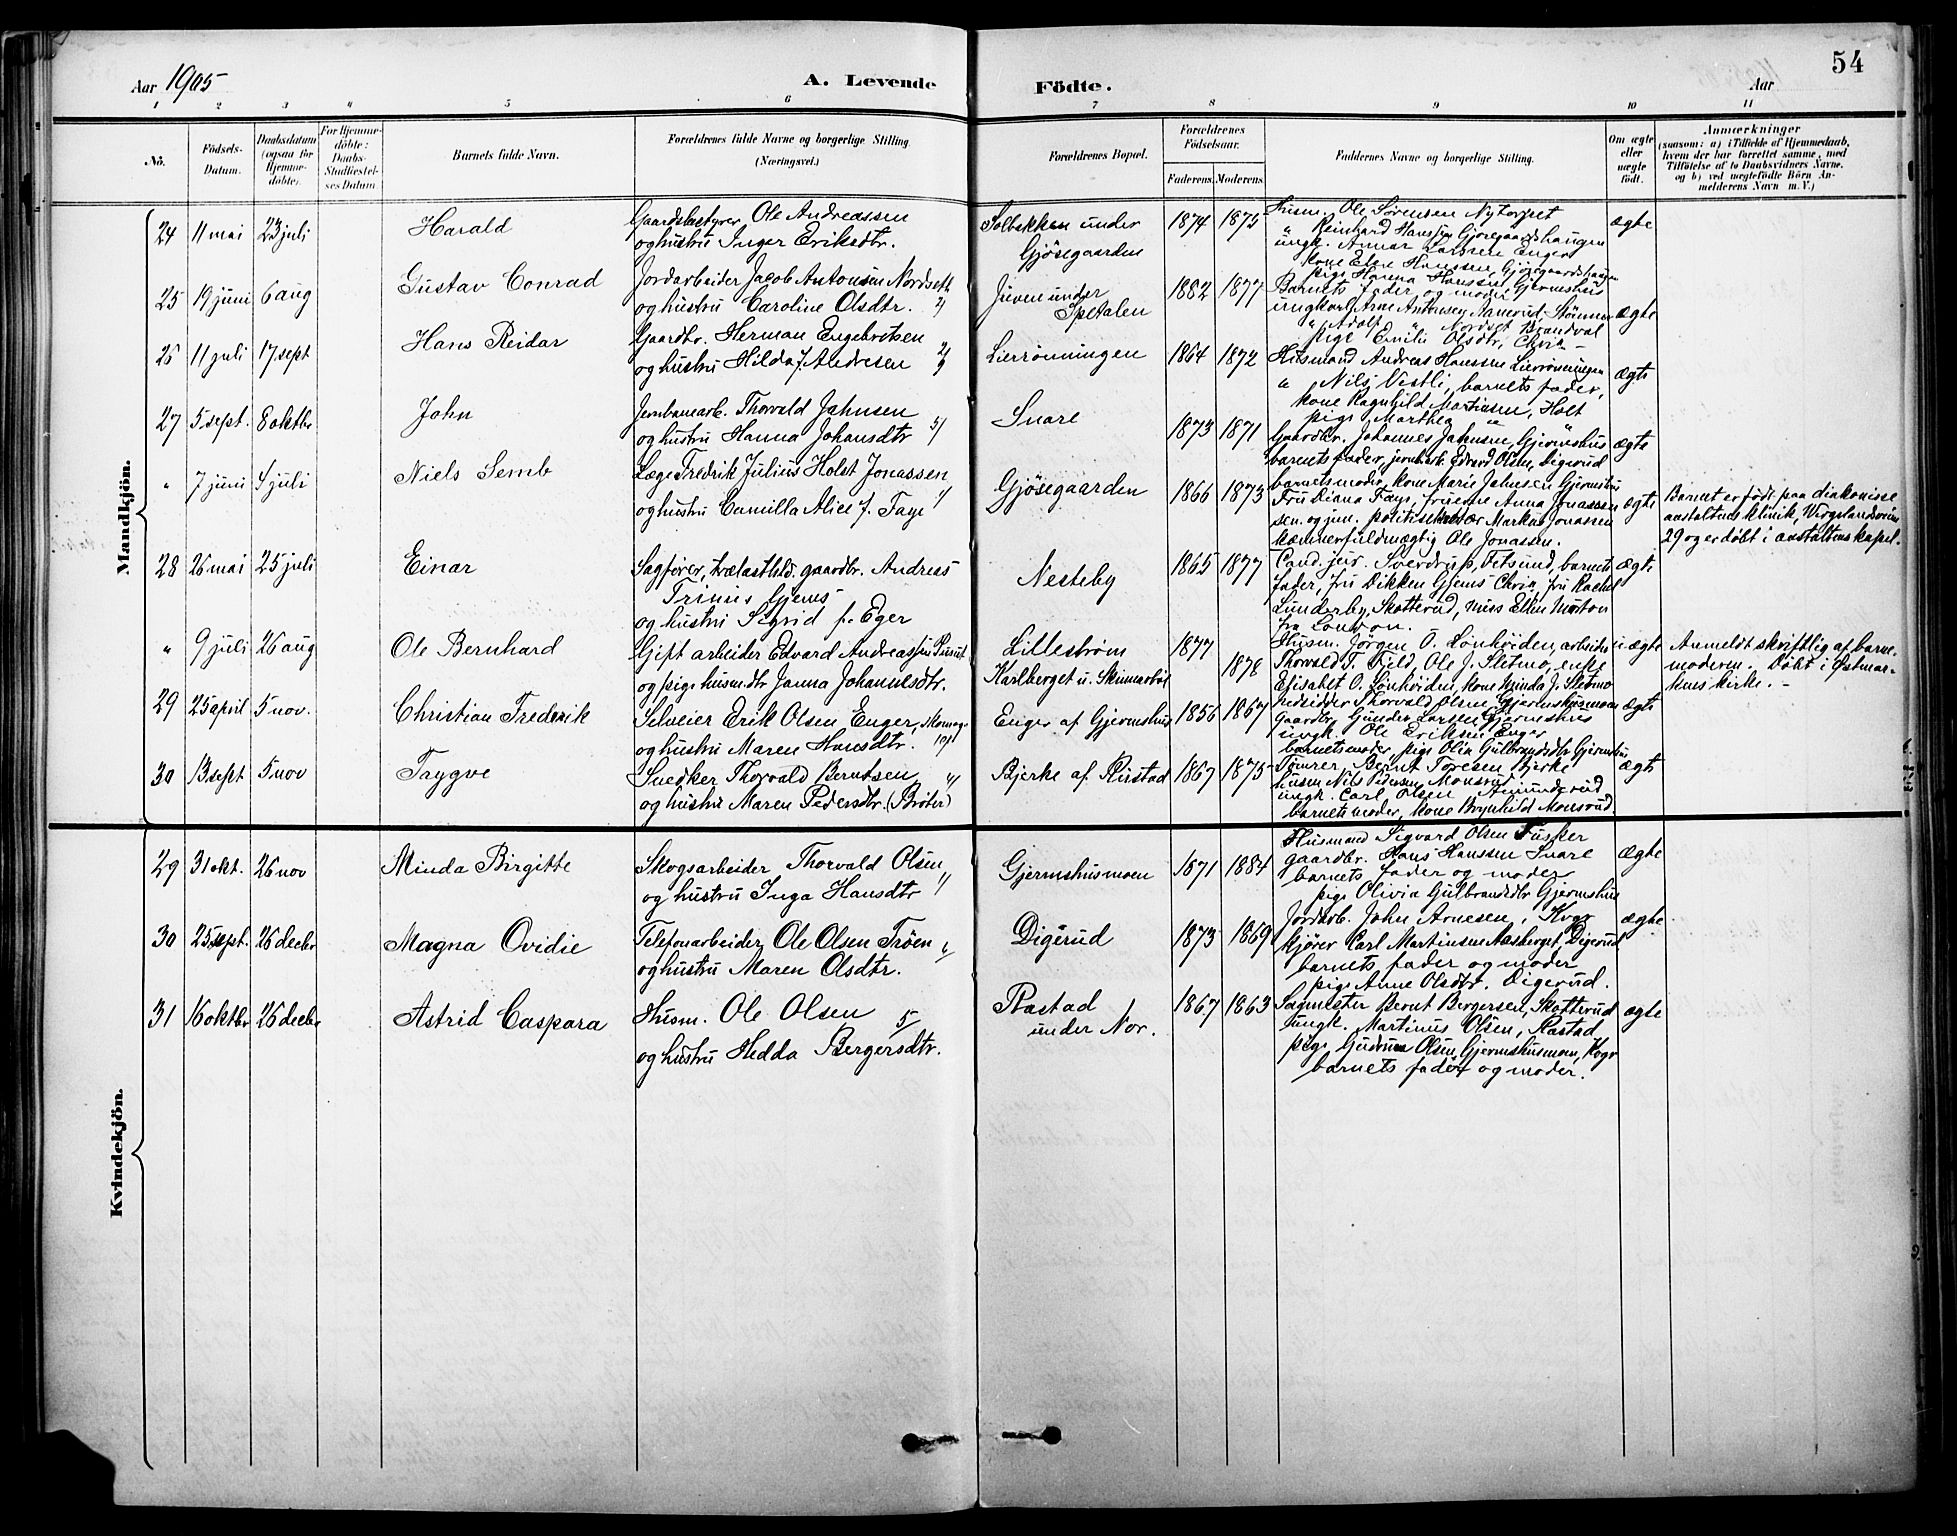 54
Aar 1905
A. Levende
Födte.
Aar
1 2 3 4 5 6 7 8 9 10 11
No.
Födsels-
Datum.
Daabsdatum
(ogsaa for
Hjemme-
döbte).
For Hjemme-
döbte:
Daabs-
Stadfæstel-
ses Datum
Barnets fulde Navn.
Forældrenes fulde Navne og borgerlige Stilling.
(Næringsvei.)
Forældrenes Bopæl.
Forældrenes
Födselsaar.
Faderens. Moderens.
Faddernes Navne og borgerlige Stilling.
Om ægte
eller
uægte
födt.
Anmærkninger
(saasom: a) i Tilfælde af Hjemmedaab,
hvem der har forrettet samme, med
Tilföielse af to Daabsvidners Navne.
og b) ved uægtefödte Börn An-
melderens Navn m. V.)
Mandkjön.
24 11 mai 23 juli Harald
Gaardsbestyrer Ole Andreassen
og hustru Inger Eriksdtr.
Solbakken under
Gjösegaarden
1874 1875
Husm. Ole Sörensen Nytorpet
" Reinhard Hanssen Gjösegaardshaugen
ungk. Annar Larssen Enger
kone Elen Hanssen, Gjösegaardshaugen
pige Hanna Hanssen, Gjermshus
ægte
25 19 juni 6 aug Gustav Conrad
Jordarbeider Jacob Antonsen Nordseth
og hustru Caroline Olsdtr.
Juven under
Spetalen
1882 1877
Barnets fader og moder
ungkarl Arne Antonsen
" Adolf " Nordset Brandval
pige Emilie Olsdtr, Chria -
ægte
26 11 juli 17 sept Hans Reidar
Gaardbr. Herman Engebretsen
og hustru Hilda f. Andresen
Lierrönningen
1864 1872
Husmand Andreas Hanssen Lierrönningen
" Nils Vestli, barnets fader,
kone Ragnhild Martinsen, Holt
pige Marthea " "
ægte
27 5 sept. 8 oktbr John
Jernbanearb. Thorvald Jahnsen
og hustru Hanna Johansdtr
Snare
1873 1871
Gaardbr. Johannes Jahnsen, Gjermshus
barnets fader, jernbarb. Edvard Olsen, Digerud
barnets moder, kone Marie Jahnsen Gjermshus
ægte
" 7 juni 4 juli Niels Semb
Læge Fredrik Julius Holst Jonassen
og hustru Camilla Alice f. Faye
Gjösegaarden
1866 1873
Fru Diana Faye, fruerne Anna Jonassen
sen. og jun. politisekretær Markus Jonassen
kæmnerfuldmægtig Ole Jonassen.
ægte
Barnet er född paa diakonisse
anstaltens klinik, Wergelandsveien
29 og er döbt i anstaltens kapel.
28 26 mai 25 juli Einar
Sagförer, trælasthld. gaardbr. Andreas
Trinus Gjems
og hustru Sigrid f. Eger
Nesteby
1865 1877
Cand. jur. Sverdrup, Fetsund, barnets
fader, fru Dikken Gjems Chria, fru Rachel
Lunderby, Skotterud, miss Ellen Morton
fra London.
ægte
" 9 juli 26 aug Ole Bernhard
Gift arbeider Edvard Andreassen
og pige husm.dtr Janna Johannesdtr.
Lilleström
Karlberget u. Skinnarböl
1877
1878
Husm. Jörgen O. Lönhöiden, arbeider
Thorvald T. Fjeld, Ole J. Sletmo, enke
Elisabet O. Lönhöiden, kone Minda J. Sletmo
uægte
Anmeldt skriftlig af barne-
moderen. Döbt i Östmar-
kens kirke. -
29 25 april 5 nov. Christian Frederik
Selveier Erik Olsen Enger,
og hustru Maren Hansdtr.
Enger af Gjermshus
1856 1867
Husm. Thorvald Olsen, Gjermshusmoen
Gaardbr. Gunder Larsen Gjermshus
ungk. Ole Eriksen Enger
barnets moder, pige Olia Gulbrandsdtr Gjermshus
ægte
30 13 sept 5 nov Taygve
Snedker Thorvald Berntsen
og hustru Maren Pedersdtr. (Bröter)
Bjerke af Rustad
1867 1875
Tömrer, Bernt Toresen Bjerke
husm Nils Pedersen Monsrud
ungk. Carl Olsen Amunderud
barnets moder, kone Brynhild Monsrud.
ægte
Kvindekjön.
29 31 okt. 26 nov Minda Birgitte
Skogsarbeider Thorvald Olsen
og hustru Inga Hansdtr
Gjermshusmoen
1871 1884
Husmand Sigvard Olsen Fusker
gaardbr. Hans Hanssen Snare
barnets fader og moder
pige Olivia Gulbrandsdtr Gjermshus
ægte
30 25 sept. 26 decbr Magna Ovidie
Telefonarbeider Ole Olsen Tröen
og hustru Maren Olsdtr.
Digerud
1873 1869
Jordarb. John Arnesen, Kvgr
kjörer Carl Martinsen Aasberget, Digerud
barnets fader og moder
pige Anne Olsdtr. Digerud.
ægte
31 16 oktbr 26 decbr Astrid Caspara
Husm. Ole Olsen
og hustru Hedda Bergersdtr.
Rastad
under Nor.
1867 1863
Sagmester Bernt Bergersen, Skotterud
Ungk. Martinus Olsen, Rastad
pige Gudrun Olsen, Gjermshusmoen, Kvgr
barnets fader og moder.
ægte